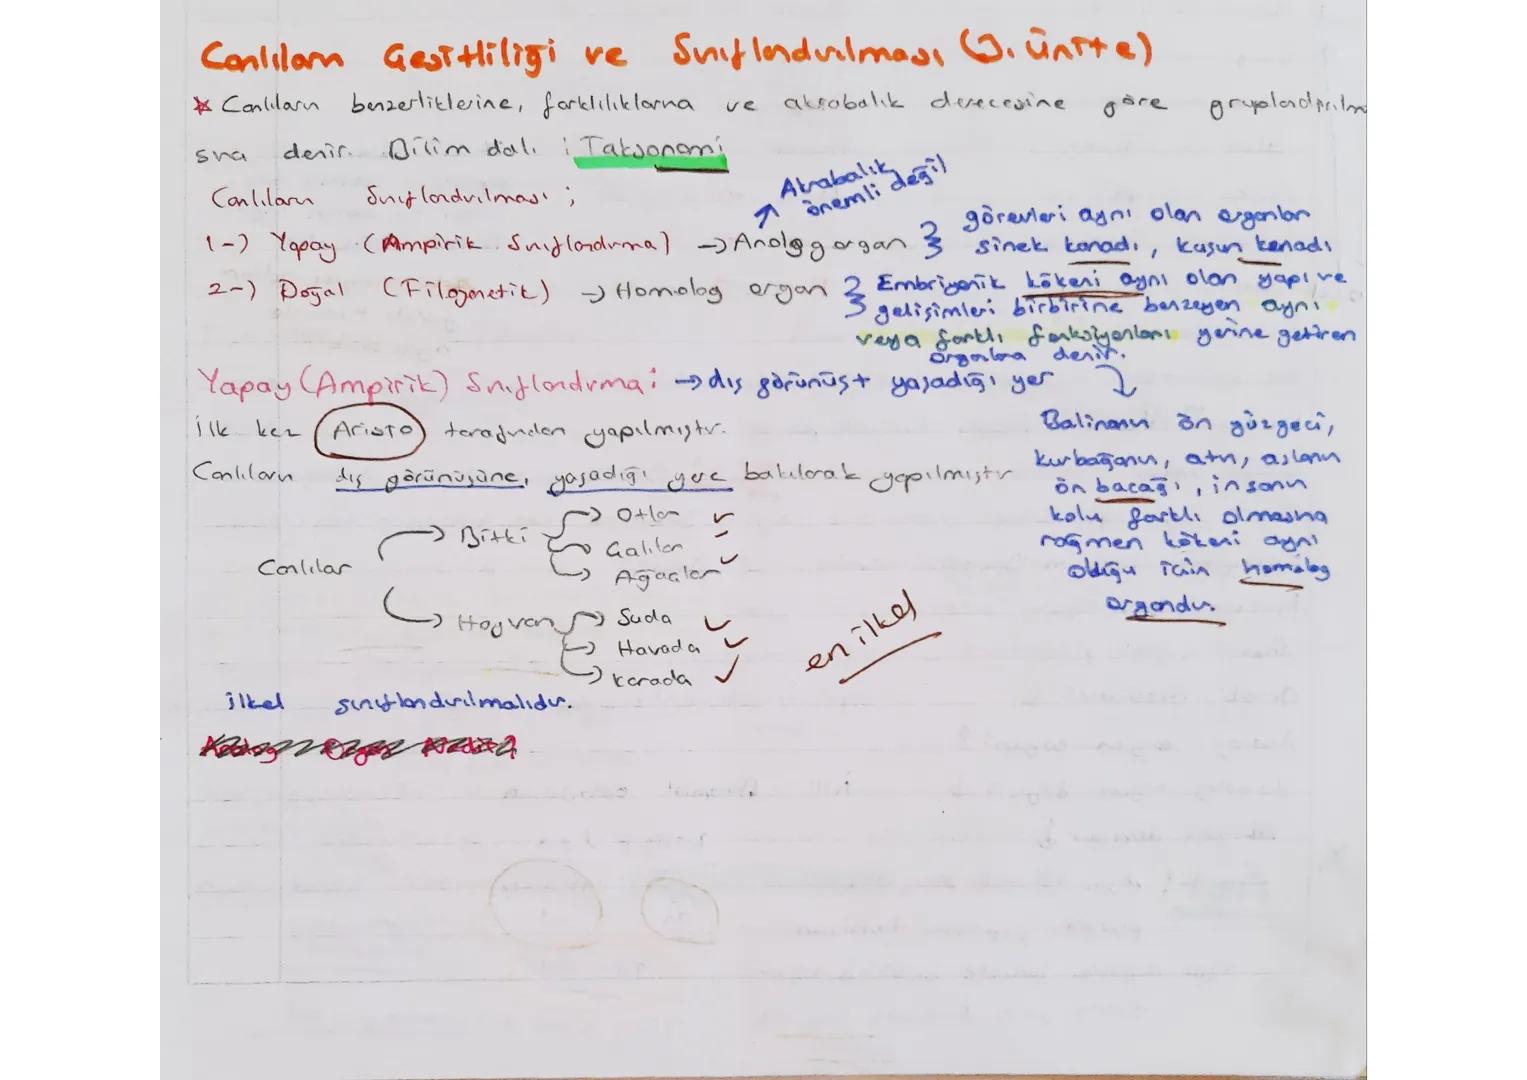 Canlıların Çeşitliliği ve Sınıflandırılması (3. Ünite)
* Canlıların benzerliklerine, farklılıklarına ve akrabalık derecesine göre gruplandırılma
sına denir. Bilim dalı : Taksonomi
Akrabalık önemli değil
Canlıların Sınıflandırılması ;
1-) Yapay (Ampirik Sınıflandırma) → Anolog organ } görevleri aynı olan organlar
sinek kanadı, kuşun kanadı
2-) Doğal (Filogenetik) → Homolog organ } Embriyonik kökeni aynı olan yapı ve
gelişimleri birbirine benzeyen aynı
veya farklı fonksiyonları yerine getiren
organlara denir.
Yapay (Ampirik) Sınıflandırma : → dış görünüş + yaşadığı yer
İlk kez Aristo tarafından yapılmıştır.
Canlıların dış görünüşüne, yaşadığı yere bakılarak yapılmıştır
Balinanın ön yüzgeci,
kurbağanın, atın, aslanın
ön bacağı, insanın
kolu farklı olmasına
rağmen kökeni aynı
olduğu için homolog
organdır.
Canlılar
→ Bitki
→ Otlar ✓
→ Çalılar ✓
→ Ağaçlar ✓
→ Hayvan
→ Suda ✓
→ Havada ✓
→ karada ✓
en ilkel
ilkel sınıflandırılmalıdır.